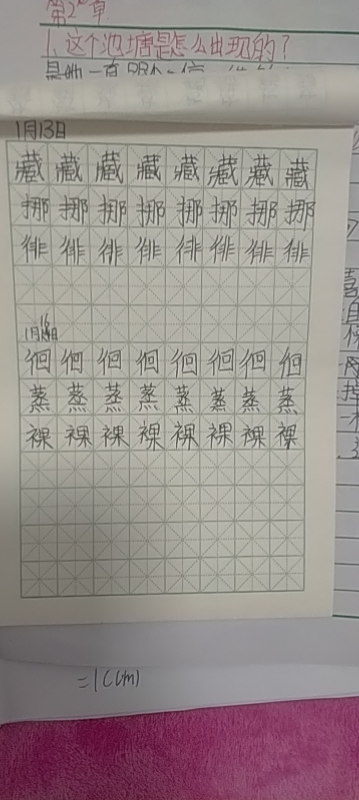 第2章
1、这个池塘是怎么出现的？
1月13日
藏藏藏藏藏藏藏藏
挪挪挪挪挪挪挪挪
徘徘徘徘徘徘徘徘
徊徊徊徊徊徊徊徊
蒸蒸蒸蒸蒸蒸蒸蒸
裸裸裸裸裸裸裸裸
=1(cm)